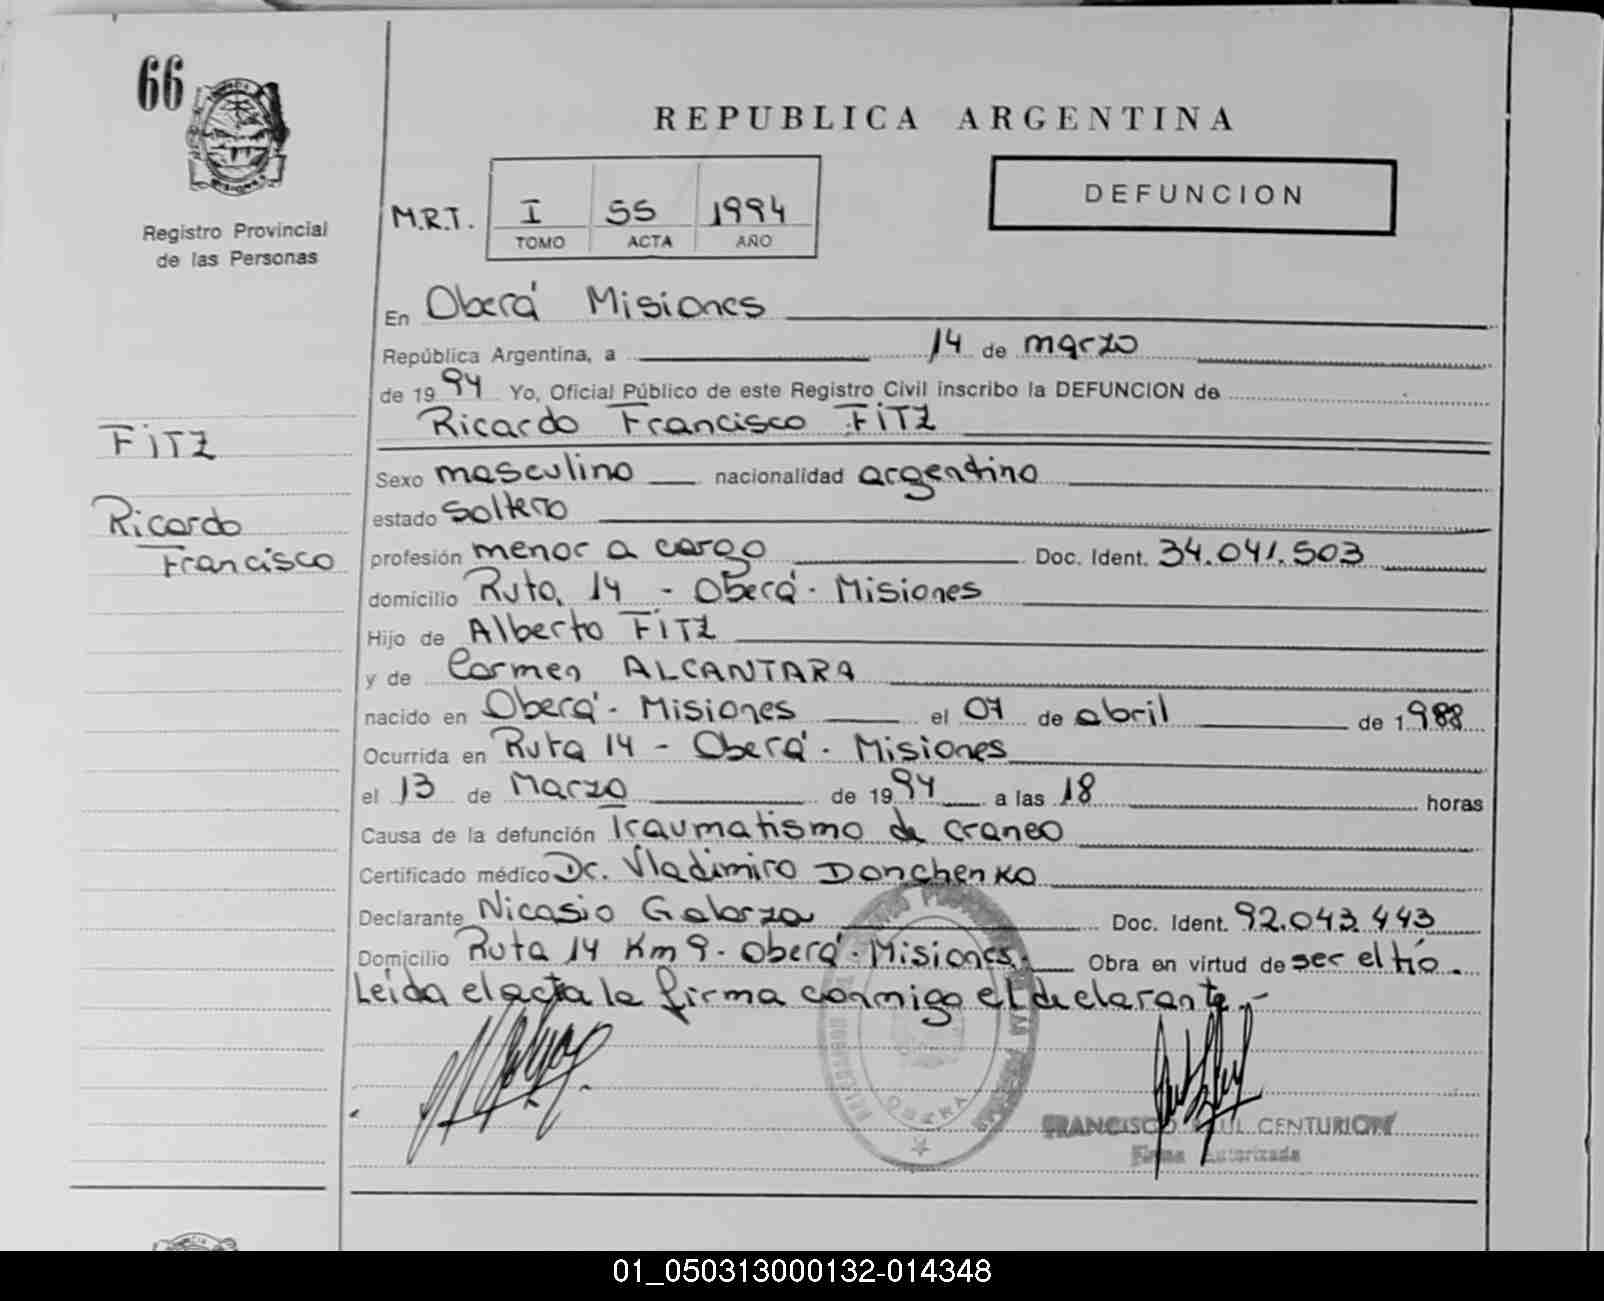 66
MISIONES
Registro Provincial
de las Personas
REPUBLICA ARGENTINA
DEFUNCION
M.R.T. I 55 1994
TOMO ACTA AÑO
En Oberá Misiones
República Argentina, a 14 de marzo
de 1994 Yo, Oficial Público de este Registro Civil inscribo la DEFUNCION de
Ricardo Francisco FITZ
FITZ
Ricardo
Francisco
Sexo masculino nacionalidad argentino
estado soltero
profesión menor a cargo Doc. Ident. 34.041.503
domicilio Ruta 14 - Oberá - Misiones
Hijo de Alberto FITZ
y de Carmen ALCANTARA
nacido en Oberá - Misiones el 07 de abril de 1988
Ocurrida en Ruta 14 - Oberá - Misiones
el 13 de Marzo de 1994 a las 18 horas
Causa de la defunción Traumatismo de craneo
Certificado médico Dr. Vladimiro Donchenko
Declarante Nicasio Galarza Doc. Ident. 92.043.443
Domicilio Ruta 14 Km 9 - Oberá - Misiones. Obra en virtud de ser el tío.
Leida el acta la firma conmigo el declarante.-
OBERA
FRANCISCO RAUL CENTURION
Firma Autorizada
01_050313000132-014348